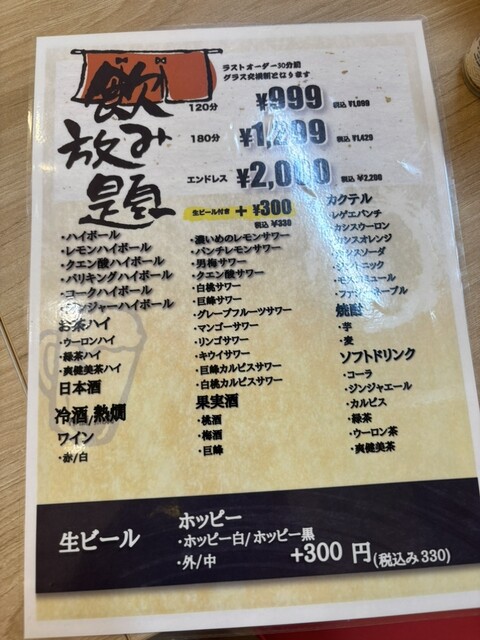 飲み
放み
題
ラストオーダー30分前
グラス交換制となります
120分 ¥999 税込 ¥1,099
180分 ¥1,299 税込 ¥1,429
エンドレス ¥2,000 税込 ¥2,200
生ビール付き +¥300
税込 ¥330
・ハイボール
・レモンハイボール
・クエン酸ハイボール
・バリキングハイボール
・コークハイボール
・ジンジャーハイボール
お茶ハイ
・ウーロンハイ
・緑茶ハイ
・爽健美茶ハイ
日本酒
冷酒/熱燗
ワイン
・赤/白
・濃いめのレモンサワー
・パンチレモンサワー
・男梅サワー
・クエン酸サワー
・白桃サワー
・巨峰サワー
・グレープフルーツサワー
・マンゴーサワー
・リンゴサワー
・キウイサワー
・巨峰カルピスサワー
・白桃カルピスサワー
果実酒
・桃酒
・梅酒
・巨峰
カクテル
・レゲエパンチ
・カシスウーロン
・カシスオレンジ
・カシスソーダ
・ジントニック
・モスコミュール
・ファジーネーブル
焼酎
・芋
・麦
ソフトドリンク
・コーラ
・ジンジャエール
・カルピス
・緑茶
・ウーロン茶
・爽健美茶
生ビール
ホッピー
・ホッピー白/ホッピー黒
・外/中
+300 円(税込み330)